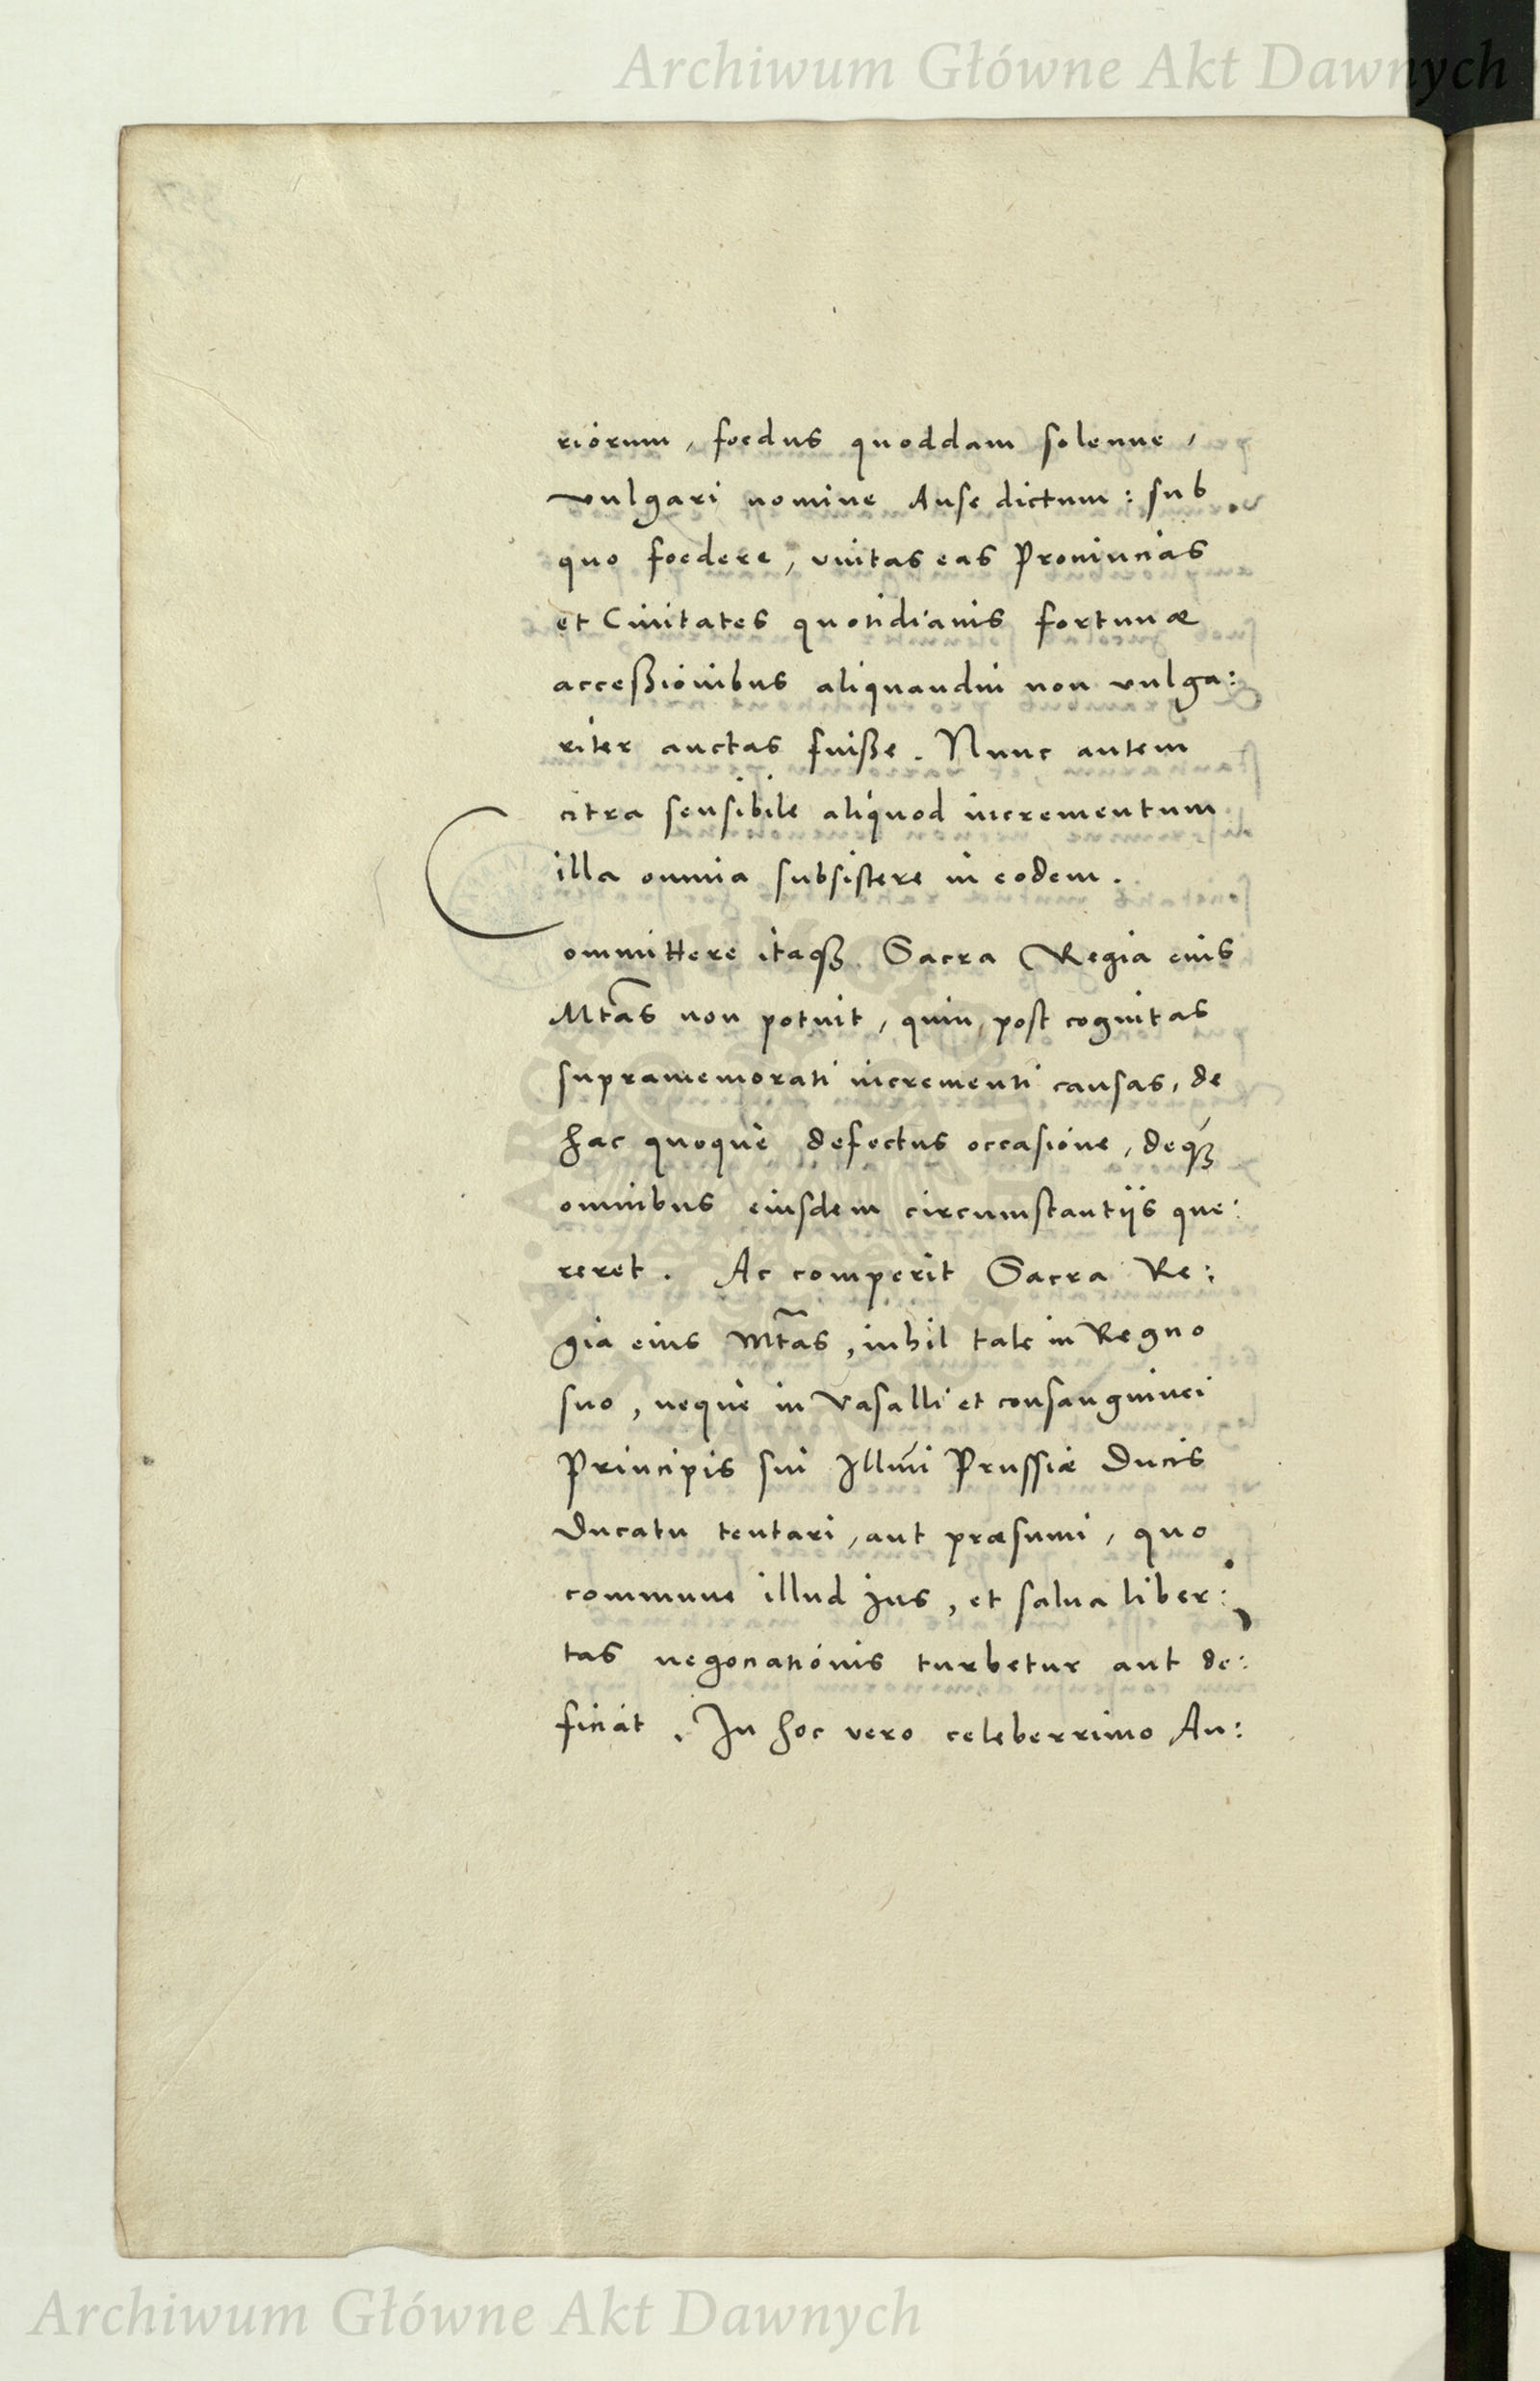 Archiwum Główne Akt Dawnych
riorum, foedus quoddam solenne,
vulgari nomine Anse dictum: sub
quo foedere, vnitas eas Prouincias
et Ciuitates quotidianis fortunæ
acceßionibus aliquandiu non vulga:
riter auctas fuiße. Nunc autem
citra sensibile aliquod incrementum
illa omnia subsistere in eodem.
Committere itaqꝫ Sacra Regia eius
Mtas non potuit, quin, post cognitas
supramemorati incrementi causas, de
hac quoquè defectus occasione, deqꝫ
omnibus eiusdem circumstantijs que:
reret. Ac comperit Sacra Re:
gia eius Mtas, nihil tale in Regno
suo, nequè in Vasalli et consanguinei
Principis sui Illmi Prussiæ Ducis
Ducatu tentari, aut præsumi, quo
commune illud jus, et salua liber:
tas negociationis turbetur aut de:
ficiat. In hoc vero celeberrimo An:
Archiwum Główne Akt Dawnych